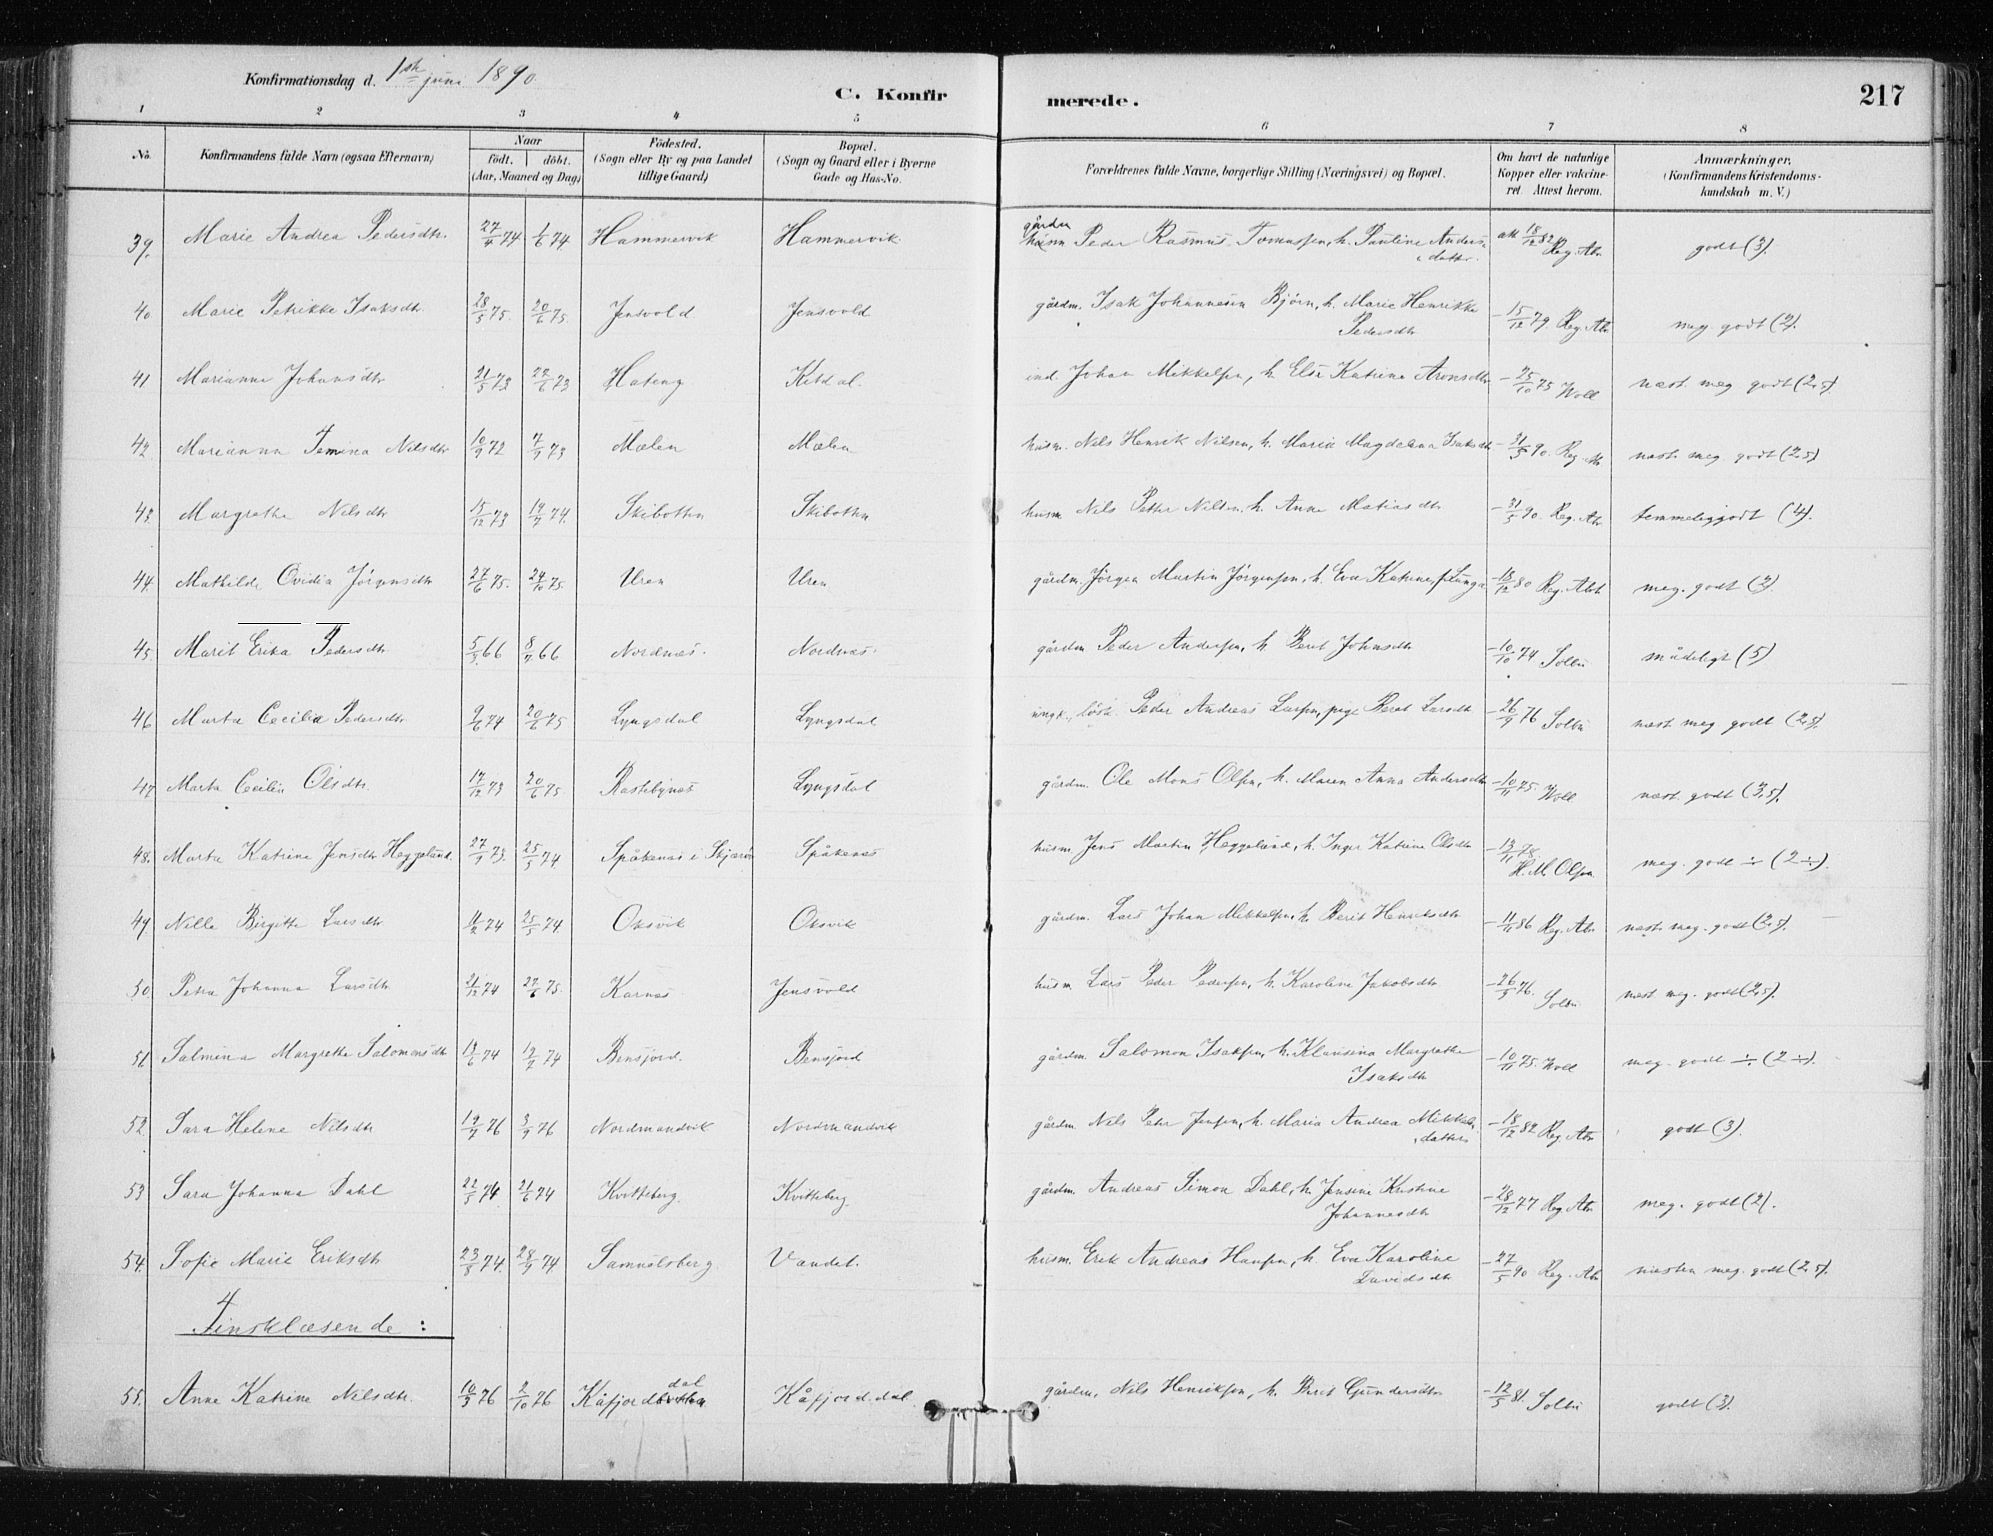 Konfirmationsdag d. 1ste juni 1890.
C. Konfirmerede.
217
1 2 3 4 5 6 7 8
No. Konfirmandens fulde Navn (ogsaa Efternavn) Naar födt. döbt. (Aar, Maaned og Dag) Födested. (Sogn eller By og paa Landet tillige Gaard) Bopæl. (Sogn og Gaard eller i Byerne Gade og Hus-No. Forældrenes fulde Navne, borgerlige Stilling (Næringsvei) og Bopæl. Om havt de naturlige Kopper eller vakcineret. Attest herom. Anmærkninger. (Konfirmandens Kristendomskundskab m. V.)
39. Marie Andrea Pedersdtr. 74 1/6 74 Hammervik Hammervik gårdm Peder Rasmus Tomassen, h. Pauline Andersdatter. att 18/12 82 Reg. Abr. godt (3).
40 Marie Petrikke Isaksdtr. 28/5 75. 20/6 75. Jensvold Jensvold gårdm. Isak Johannesen Bjørn, h. Marie Henrikke Pedersdtr - 15/12 79 Reg. Abr meg godt (2).
41 Marianna Johansdtr 21/5 73 22/6 73 Hateng Kitdal. ind. Johan Mikkelsen, h. Else Katrine Aronsdtr - 25/10 75 Woll næst. meg godt (2,5).
42 Marianna Jemina Nilsdtr 10/9 72 7/9 73 Mælen Mælen husm. Nils Henrik Nilsen, h. Maria Magdelena Isaksdtr - 31/5 90. Reg. Abr næst. meg. godt (2,5)
43. Margrethe Nilsdtr 15/12 73 19/7 74. Skibotten Skibotten husm Nils Petter Nilsen, h. Anne Matiasdtr - 31/5 90. Reg. Abr temmelig godt (4).
44. Mathilde Ovidia Jörgensdtr 27/6 75. 24/10 75. Uren Uren gårdm. Jörgen Martin Jörgensen, h. Eva Katrine, f. Lunga - 18/12 80 Reg. Abr meg. godt (2)
45. Marit Erika Pedersdtr 5/3 66 8/7 66 Nordnæs. Nordnæs. gårdm Peder Andersen, h Berit Johnsdtr - 10/10 74 Solbu mådeligt (5)
46 Marta Cecilia Pedersdtr 9/6 74 20/6 75 Lyngsdal Lyngsdal ungk., lösk. Peder Andreas Larsen, pige Beret Larsdtr - 26/9 76 Solbu næst meg godt (2,5).
47 Marta Cecilia Olsdtr. 17/12 73 20/6 75 Rastebynæs Lyngsdal gårdm. Ole Mons Olsen, h. Maren Anna Andersdtr - 10/11 75. Woll næst. godt (3,5).
48. Marta Katrine Jensdtr Heggelund. 27/9 73. 25/5 74 Spåkenæs i Skjervø Spåkenæs husm. Jens Martin Heggelund, h. Inger Katrine Olsdtr - 13/11 78. H. M. Olsen. meg. godt ÷ (2÷).
49. Nille Birgitte Larsdtr 11/2 74 25/5 74. Oksvik Oksvik gårdm. Lars Johan Mikkelsen, h. Berit Henriksdtr - 11/11 86 Reg. Abr næst. meg. godt (2,5).
50. Petra Johanna Larsdtr 21/12 74 27/6 75. Karnes Jensvold husm. Lars Peder Pedersen, h. Karoline Jakobsdtr - 26/5 76. Solbu næst meg. godt (2,5).
51. Salmina Margrethe Salomonsdtr 13/6 74 19/7 74 Bensjord Bensjord gårdm. Salomon Isaksen, h. Klausina Margrethe Isaksdtr - 10/11 75. Woll meg. godt ÷ (2÷).
52. Sara Helene Nilsdtr 19/7 76 3/9 76 Nordmandvik Nordmandvik gårdm. Nils Peter Jensen, h. Maria Andrea Mikkelsdatter - 18/12 82 Reg. Abr godt (3).
53 Sara Johanna Dahl 22/5 74 21/6 74 Kvitteberg. Kvitteberg. gårdm. Andreas Simon Dahl, h. Jensine Kristine Johannesdtr - 28/12 77 Reg Abr meg. godt (2).
54. Sofie Marie Eriksdtr 23/8 74. 28/9 74 Samuelsberg Vandet. husm. Erik Andreas Hansen, h. Eva Karoline Davidsdtr - 27/5 90 Reg. Abr næsten meg. godt (2,5).
Finsklæsende:
55. Anne Katrine Nilsdtr. 10/3 76 2/10 76 Kåfjorddal Kåfjorddal. gårdm. Nils Henriksen, h. Berit Gundersdtr - 12/5 81. Solbu godt (3).